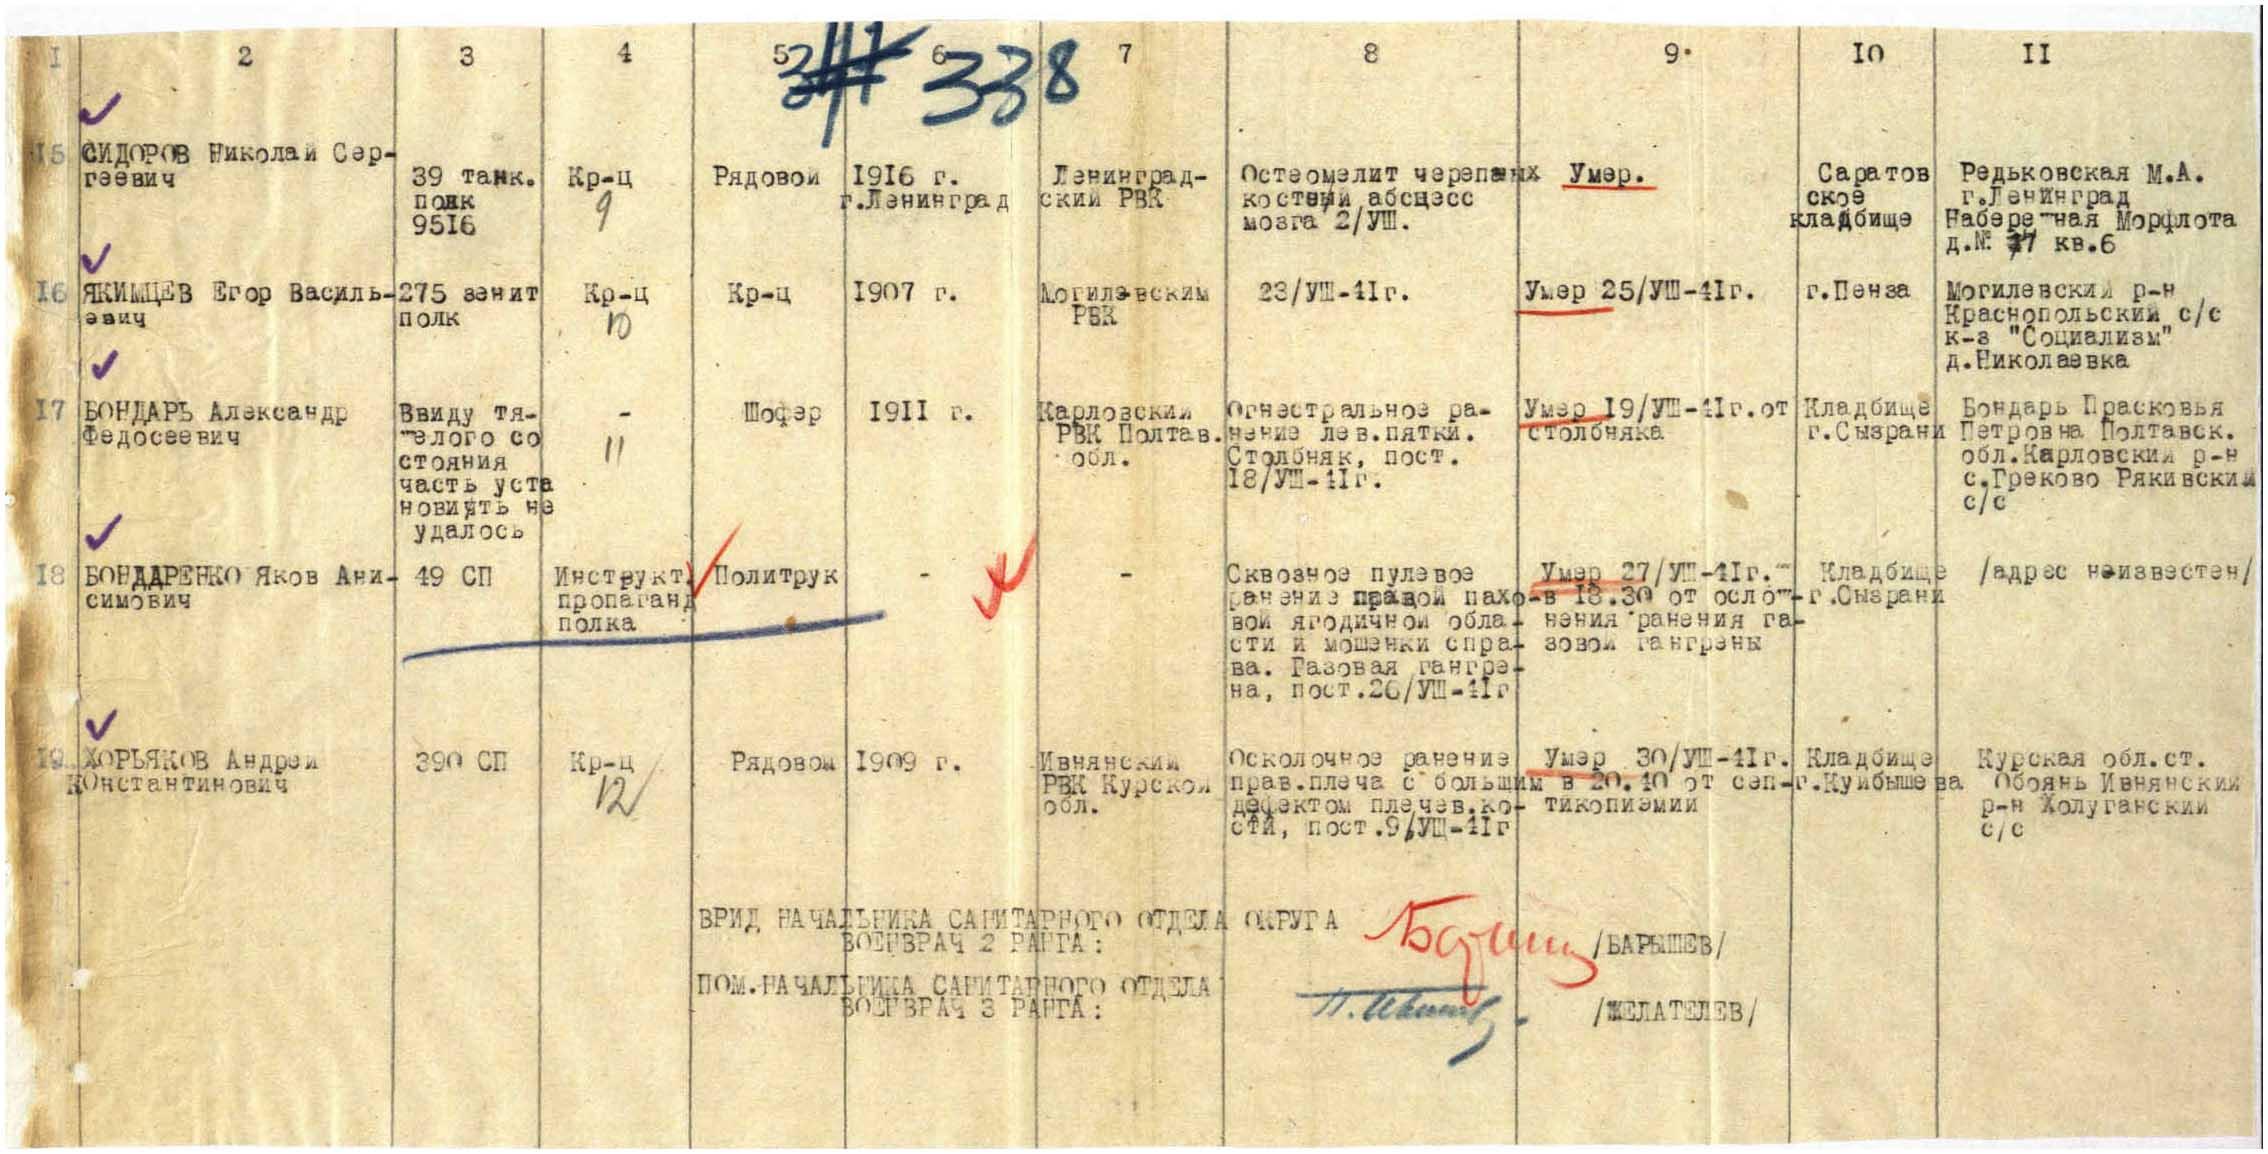 1 2 3 4 5 6 7 8 9. 10 11
338
15 СИДОРОВ Николай Сер-
геевич
39 танк.
полк
9516
Кр-ц
9
Рядовой
1916 г.
г.Ленинград
Ленинград-
ский РВК
Остеомелит черепных
костей абсцесс
мозга 2/УШ.
Умер.
Саратов
ское
кладбище
Редьковская М.А.
г.Ленинград
Набере-ная Морфлота
д.№ 17 кв.6
16 ЯКИМЦЕВ Егор Василь-
евич
275 зенит
полк
Кр-ц
10
Кр-ц
1907 г.
Могилевским
РВК
23/УШ-41г.
Умер 25/УШ-41г.
г.Пенза
Могилевский р-н
Краснопольский с/с
к-з "Социализм"
д.Николаевка
17 БОНДАРЬ Александр
Федосеевич
Ввиду тя-
-елого со
стояния
часть уста
новить не
удалось
-
11
Шофер
1911 г.
Карловский
РВК Полтав.
обл.
Огнестрельное ра-
нение лев.пятки.
Столбняк, пост.
18/УШ-41г.
Умер 19/УШ-41г.от
столбняка
Кладбище
г.Сызрани
Бондарь Прасковья
Петровна Полтавск.
обл.Карловский р-н
с.Греково Рякивский
с/с
18 БОНДАРЕНКО Яков Ани-
симович
49 СП
Инструкт.
пропаганд
полка
Политрук
-
-
Сквозное пулевое
ранение правой пахо-
вой ягодичной обла-
сти и мошенки спра-
ва. Газовая гангре-
на, пост.26/УШ-41г
Умер 27/УШ-41г.-
в 18.30 от осло-
нения ранения га-
зовой гангрены
Кладбище
г.Сызрани
/адрес неизвестен/
19 ХОРЬЯКОВ Андрей
КОнстантинович
390 СП
Кр-ц
12
Рядовой
1909 г.
Ивнянский
РВК Курской
обл.
Осколочное ранение
прав.плеча с большим
дефектом плечев.ко-
сти, пост.9/УШ-41г
Умер 30/УШ-41г.
в 20.40 от сеп-
тикопиэмии
Кладбище
г.Куйбышева
Курская обл.ст.
Обоянь Ивнянский
р-н Холуганский
с/с
ВРИД НАЧАЛЬНИКА САНИТАРНОГО ОТДЕЛА ОКРУГА
ВОЕНВРАЧ 2 РАНГА: /БАРЫШЕВ/
ПОМ.НАЧАЛЬНИКА САНИТАРНОГО ОТДЕЛА
ВОЕНВРАЧ 3 РАНГА: /ЖЕЛАТЕЛЕВ/